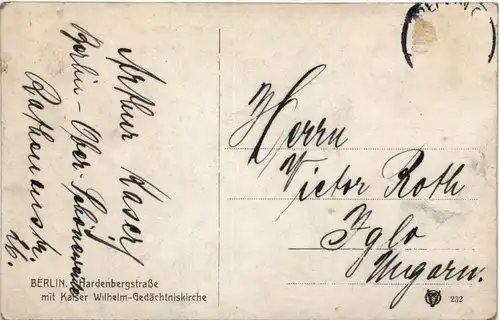 Arthur Kaiser
Berlin - Ober-Schöneweide
Rathenaustr.
Herrn
Victor Roth
Iglo
Ungarn.
BERLIN. Hardenbergstraße
mit Kaiser Wilhelm-Gedächtniskirche
232